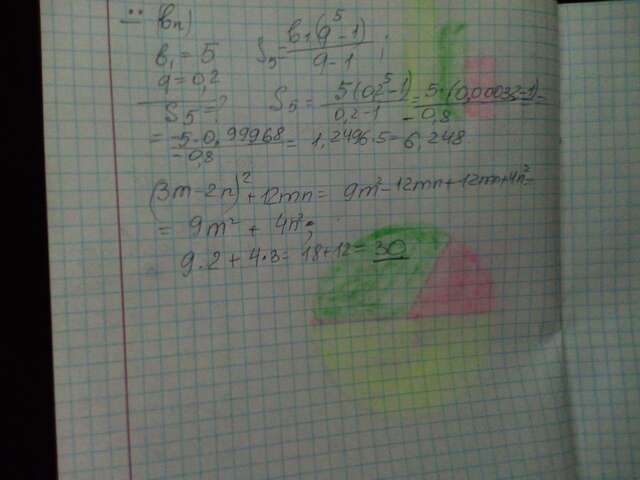 ∺ (bn)
b₁ = 5   S₅ = b₁(q⁵-1) / q-1 ;
q = 0,2
S₅ = ?   S₅ = 5(0,2⁵-1) / 0,2-1 = 5·(0,00032-1) / -0,8 =
= -5·0,99968 / -0,8 = 1,2496·5 = 6,248
(3m-2n)² + 12mn = 9m²-12mn+12mn+4n² =
= 9m² + 4n²;
9·2 + 4·3 = 18+12 = 30